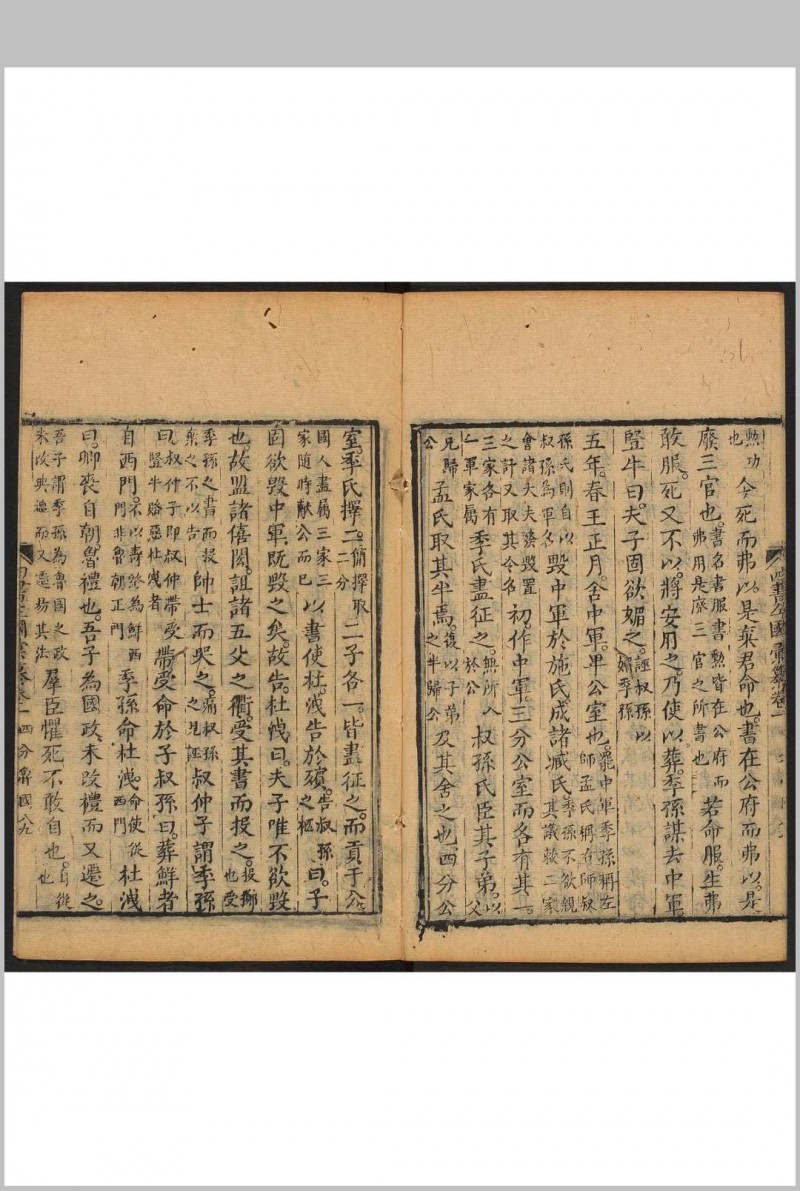 勲功也今死而弗以是棄君命也。書在公府而弗以。是
廢三官也。書名書服書勲皆在公府而弗用是廢三官之所書也若命服。生弗
敢服。死又不以。將安用之。乃使以葬。季孫謀去中軍
豎牛曰。夫子固欲媚之。誣叔孫以媚季孫
五年。春王正月。舍中軍。卑公室也。罷中軍季孫稱左師孟氏稱右師叔
孫氏則自以叔孫為軍名毀中軍於施氏。成諸臧氏。季孫不欲親其議敕二家
會諸大夫發毀置之計又取其令名初作中軍。三分公室而各有其一。
三家各有一軍家屬季氏盡征之。無所入於公叔孫氏臣其子弟。以父
兄歸公孟氏取其半焉。復以子弟之半歸公及其舍之也四分公
室。季氏擇二。簡擇取二分二子各一。皆盡征之。而貢于公
國人盡屬三家三家隨時獻公而已以書使杜洩告於殯。告叔孫之柩曰。子
固欲毀中軍。既毀之矣。故告。杜洩曰。夫子唯不欲毀
也。故盟諸僖閎。詛諸五父之衢。受其書而投之。投擲也受
季孫之書而投棄之不以告帥士而哭之。痛叔孫之見誣叔仲子謂季孫
曰。叔仲子即叔仲帶豎牛賂惡杜洩者帶受命於子叔孫曰。葬鮮者
自西門。不以壽終為鮮西門非魯朝正門季孫命杜洩。命使從西門杜洩
曰。卿喪自朝。魯禮也。吾子為國政。未改禮而又遷之。
吾子謂季孫為魯國之政未改典禮而又遷易其法羣臣懼死不敢自也。自從也
四分魯國 八九